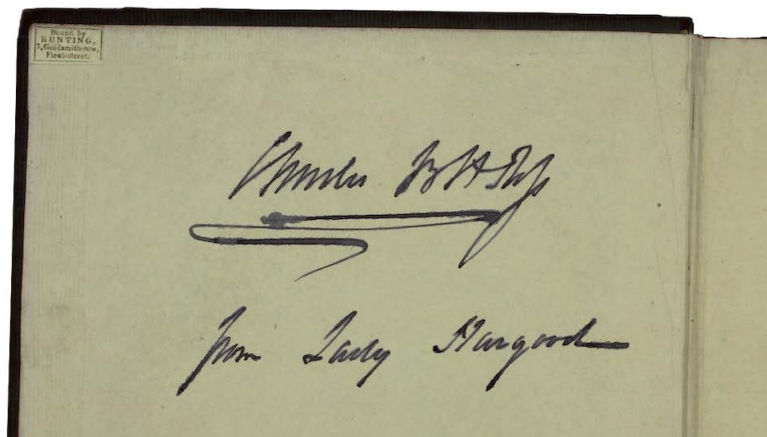 Bound by
BUNTING,
7, Goldsmith-row,
Fleet-street.
Charles
from Lady Hargood